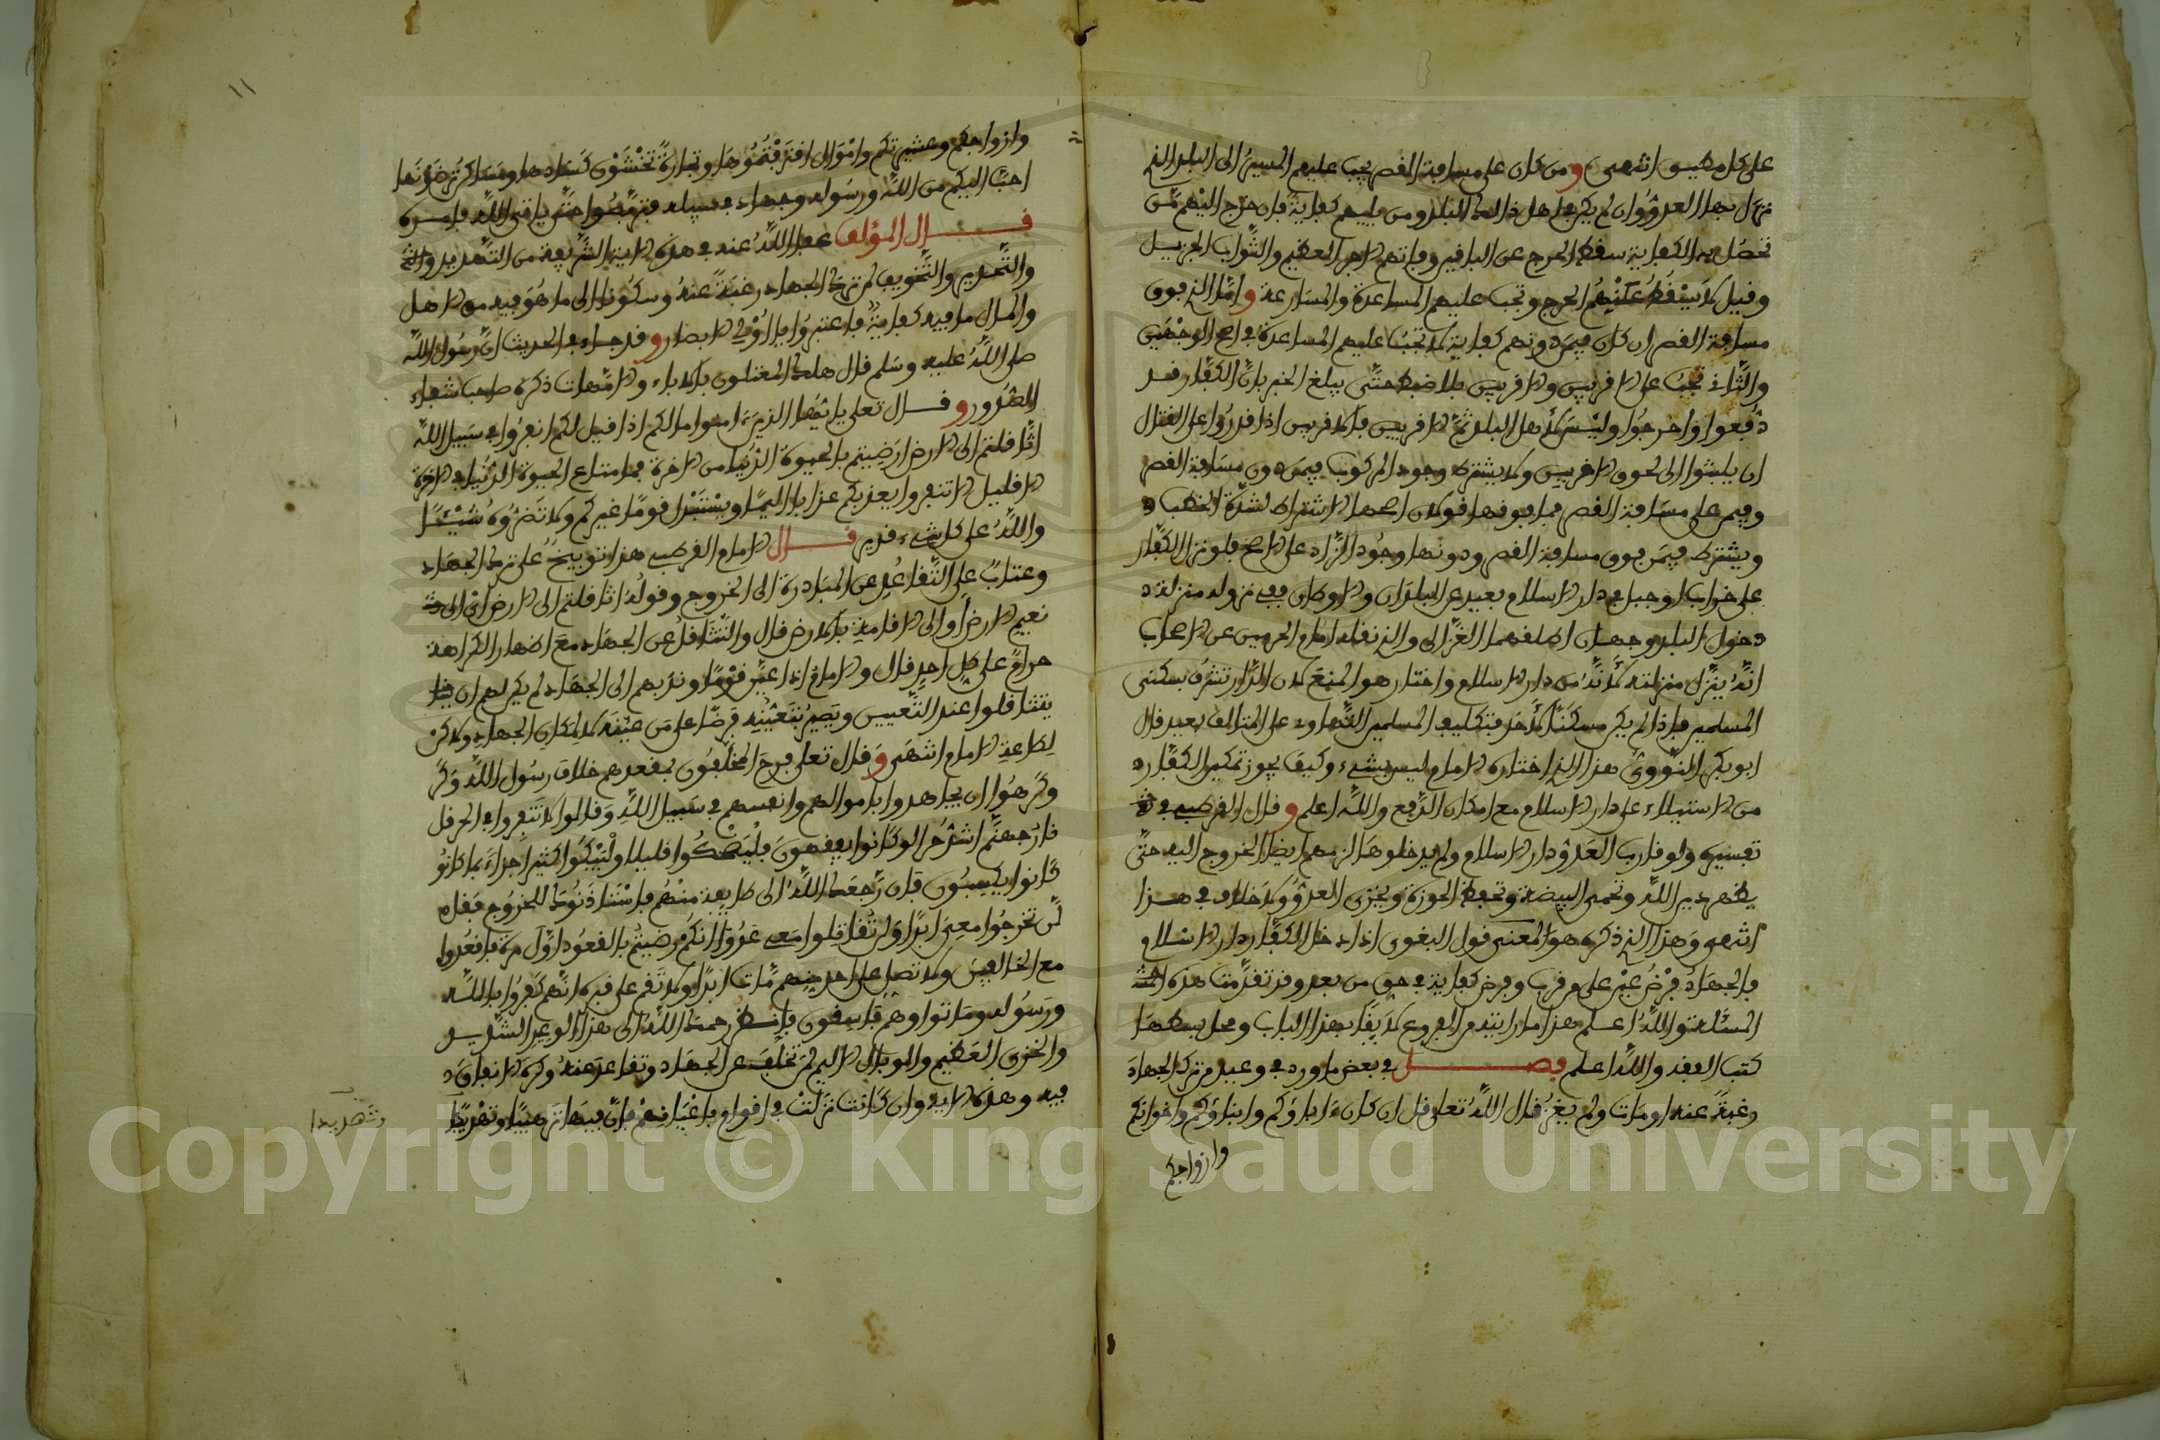 على كل مطيق انتهى ومن كان على مسافة القصر يجب عليهم المسير الى البلد الذي
نزل بها العدو وان لم يكن في اهل ذلك البلد ومن يليهم كفاية فان خرج اليهم من
تحصل به الكفاية سقط الحرج عن الباقين وفاتهم الاجر العظيم والثواب الجزيل
وقيل لا يسقط عنهم الحرج وتجب عليهم المساعدة والمسارعة واما الذي فوق
مسافة القصر ان كان فيمن دونهم كفاية لا تجب عليهم المساعدة في اصح الوجهين
والثاني تجب على الاقربين والاقربين بلا ضبط حتى يبلغ الخبر بان الكفار قد
دفعوا واخرجوا وليس لاهل البلد ثم الاقربين فالاقربين اذا قدروا على القتال
ان يلبثوا الى لحوق الاخرين ولا يشترط وجود المركوب فيمن دون مسافة القصر
وفيمن على مسافة القصر فما فوقها قولان اصحهما الاشتراط لشدة الخطب و
ويشترط فيمن فوق مسافة القصر ودونها وجود الزاد على الاصح فلو نزل الكفار
على خراب او جبل في دار الاسلام بعيد عن البلدان والاوطان ففي نزوله منزلة د
دخول البلد وجهان اطلقهما الغزالي والذي نقله امام الحرمين عن الاصحاب
انه ينزل منزلته لانه من دار الاسلام واختار هو المنع لان الدار تشرف بسكنى
المسلمين فاذا لم يكن مسكنا لاحد فتكليف المسلمين التهاوي على المتالف بعيد قال
ابو بكر النووي هذا الذي اختاره الامام ليس بشيء وكيف يجوز تمكين الكفار د
من الاستيلاء على دار الاسلام مع امكان الدفع والله اعلم وقال القرطبي في
تفسيره ولو قارب العدو دار الاسلام ولم يدخلوها لزمهم ايضا الخروج اليه حتى
يظهر دين الله وتحمى البيضة وتحفظ الحوزة ويخزى العدو ولا خلاف في هذا
انتهى وهذا الذي ذكره هو المعنى قول البغوي اذا دخل الكفار دار الاسلام
فالجهاد فرض عين على من قرب وفرض كفاية في حق من بعد وقد تقدمت هذه
المسئلة والله اعلم هذا ما را يتدعى الفروع لا يفا بهذا الباب ومحل بسطها
كتب الفقه والله اعلم فصل في بعض ما ورد في وعيد من ترك الجهاد
رغبة عنه او مات ولم يغز قال الله تعلى قل ان كان ءاباؤكم وابناؤكم واخوانكم
وازواجكم
وازواجكم وعشيرتكم واموال اقترفتموها وتجارة تخشون كسادها ومساكن ترضونها
احب اليكم من الله ورسوله وجهاد في سبيله فتربصوا حتى ياتي الله بامره
قال المؤلف عفا الله عنه في هذه الاية الشريفة من التهديد
والتحذير والتخويف لمن ترك الجهاد رغبة عنه وسكونا الى ما هو فيه من الاهل
والمال ما فيه كفاية فاعتبروا يا اولي الابصار وقد جاء في الحديث ان رسول الله
صلى الله عليه وسلم قال هلك المغتلون بالاباء والامهات ذكره صاحب شفاء
الصدور وقال تعلى يا ايها الذين ءامنوا ما لكم اذا قيل لكم انفروا في سبيل الله
اثاقلتم الى الارض ارضيتم بالحيوة الدنيا من الاخرة فما متاع الحيوة الدنيا في الاخرة
الا قليل الا تنفروا يعذبكم عذابا اليما ويستبدل قوما غيركم ولا تضروه شيئا
والله على كل شيء قدير قال الامام القرطبي هذا توبيخ على ترك الجهاد
وعتاب على التقاعد عن المبادرة الى الخروج وقوله اثاقلتم الى الارض اي الى
نعيم الارض او الى الاقامة بالارض قال والتثاقل عن الجهاد مع اظهار الكراهة
حرام على كل احد قال والامام اذا عين قوما وندبهم الى الجهاد لم يكن لهم ان
يتثاقلوا عند التعيين ويصير بتعيينه فرضا على من عينه لا لمكان الجهاد ولاكن
لطاعة الامام انتهى وقال تعلى فرح المخلفون بمقعدهم خلاف رسول الله وكر
وكرهوا ان يجاهدوا باموالهم وانفسهم في سبيل الله وقالوا لا تنفروا في الحر قل
نار جهنم اشد حرا لو كانوا يفقهون فليضحكوا قليلا وليبكوا كثيرا جزاء بما كانو
كانوا يكسبون فان رجعك الله الى طايفة منهم فاستاذنوك للخروج فقل
لن تخرجوا معي ابدا ولن تقاتلوا معي عدوا انكم رضيتم بالقعود اول مرة فاقعدوا
مع الخالفين ولا تصل على احد منهم مات ابدا ولا تقم على قبره انهم كفروا بالله
ورسوله وماتوا وهم فاسقون فانظر رحمك الله الى هذا الوعيد الشديد
والخزي العظيم والوبال الاليم لمن تخلف عن الجهاد وتقاعد عنه وكره الانفاق د
فيه وهذه الاية وان كانت نزلت في اقوام باعيانهم فان فيها ترهيبا وتهديدا
وتهديدا
١١
Copyright © King Saud University